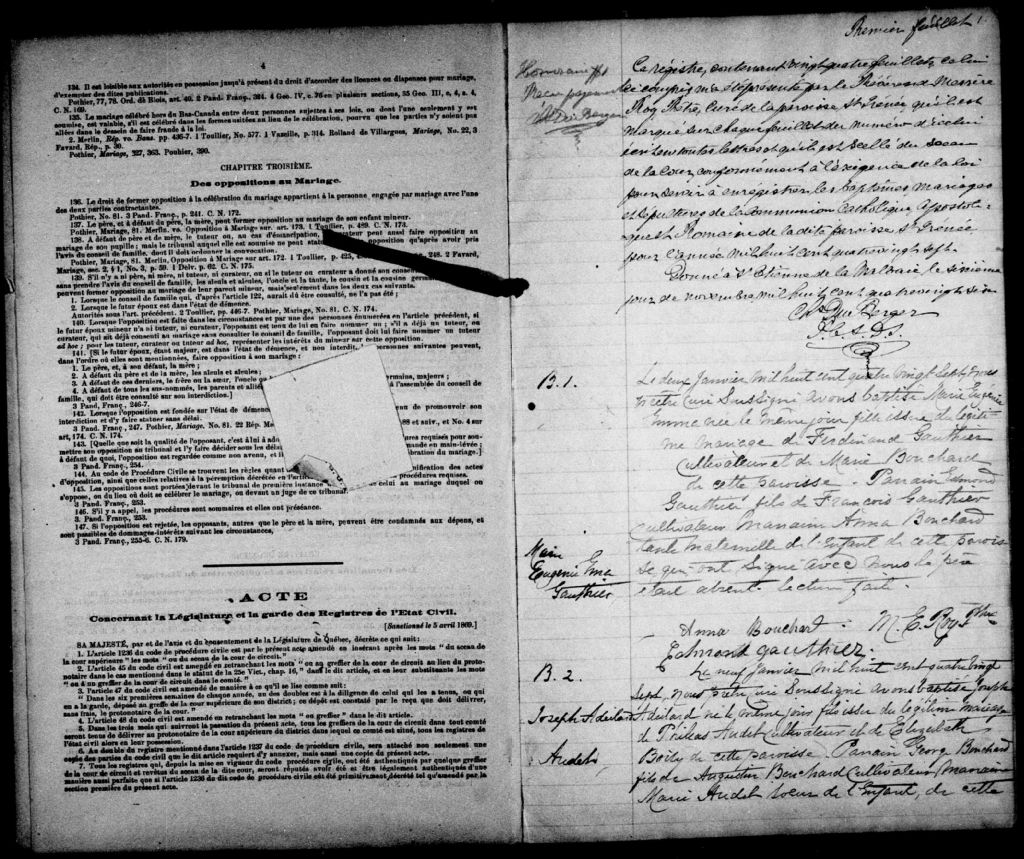 4
134. Il est loisible aux autorités en possession jusqu'à présent du droit d'accorder des licences ou dispenses pour mariage,
d'exempter des dites publications.
Pothier, 77, 78. Ord. de Blois, art. 40. 2 Pand. Franç., 264. 4 Geo. IV, c. 76 en plusieurs sections, 35 Geo. III, c. 4, s. 4,
C. N. 169.
135. Le mariage célébré hors du Bas-Canada entre deux personnes sujettes à ses lois, ou dont l'une seulement y est
soumise, est valable, s'il est célébré dans les formes usitées au lieu de la célébration, pourvu que les parties n'y soient pas
allées dans le dessein de faire fraude à la loi.
2. Merlin, Rép. vo. Bans. pp. 436-7. 1 Toullier, No. 577. 1 Vazeille, p. 314. Rolland de Villargues, Mariage, No. 22, 3
Favard, Rép., p. 30.
Pothier, Mariage, 327, 363. Pouhier, 390.
CHAPITRE TROISIÈME.
Des oppositions au Mariage.
136. Le droit de former opposition à la célébration du mariage appartient à la personne engagée par mariage avec l'une
des deux parties contractantes.
Pothier, No. 81. 3 Pand. Franç., p. 241. C. N. 172.
137. Le père, et à défaut du père, la mère, peut former opposition au mariage de son enfant mineur.
Pothier, Mariage, 81. Merlin. vo. Opposition à Mariage sur. art. 173. 1 Toullier, p. 489. C. N. 173.
138. A défaut de père et de mère, le tuteur ou, au cas d'émancipation, curateur peut aussi faire opposition au
mariage de son pupille; mais le tribunal auquel elle est soumise ne peut statuer opposition qu'après avoir pris
l'avis du conseil de famille, dont il doit ordonner la convocation.
Pothier, Mariage, 81. Merlin, Opposition à Mariage sur art. 172. 1 Toullier, p. 425, 248. 2 Favard,
Mariage, sec. 2, § 1, No. 3, p. 59. 1 Delv. p. 62. C. N. 175.
139. S'il n'y a ni père, ni mère, ni tuteur, ni curateur, ou si le tuteur ou curateur a donné son consentement
sans prendre l'avis du conseil de famille, les aïeuls et aïeules, l'oncle et la tante, le cousin et la cousine
peuvent former opposition au mariage de leur parent mineur, mais seulement dans les deux cas suivants.
1. Lorsque le conseil de famille qui, d'après l'article 122, aurait dû être consulté, ne l'a pas été;
2. Lorsque le futur époux est dans l'état de démence.
Autorités sous l'art. précédent. 2 Toullier, pp. 446-7. Pothier, Mariage, No. 81, C. N. 174.
140. Lorsque l'opposition est faite dans les circonstances et par une des personnes énumérées en l'article précédent, si
le futur époux mineur n'a ni tuteur, ni curateur, l'opposant est tenu de lui en faire nommer un; s'il a déjà un tuteur, ou
curateur, qui ait déjà consenti au mariage sans consulter le conseil de famille, l'opposant doit lui faire nommer un tuteur
ad hoc; pour les tuteur, curateur ou tuteur ad hoc, représenter les intérêts du mineur sur cette opposition.
141. [Si le futur époux, étant majeur, est dans l'état de démence, et non interdit, personnes suivantes peuvent,
dans l'ordre où elles sont mentionnées, faire opposition à son mariage:
1. Le père, et, à son défaut, la mère;
2. A défaut du père et de la mère, les aïeuls et aïeules;
3. A défaut de ces derniers, le frère ou la sœur, l'oncle germains, majeurs;
4. A défaut de tous les sus-nommés, les parents et alliés à l'assemblée du conseil de
famille, qui doit être consulté sur son interdiction.]
3 Pand. Franç., 246-7.
142. Lorsque l'opposition est fondée sur l'état de démence de promouvoir son
interdiction et d'y faire statuer sans délai.
3 Pand. Franç., 247. Pothier, Mariage. No. 81. 22 Rép. 88 et suiv., et No. 4 sur
art, 174. C. N. 174.
143. [Quelle que soit la qualité de l'opposant, c'est à lui à requises pour sou-
mettre son opposition au tribunal et l'y faire décider dans les demande en main-levée;
à défaut de quoi, l'opposition est regardée comme non avenue, célébration du mariage.]
3 Pand. Franç., 254.
144. Au code de Procédure Civile se trouvent les règles quant signification des actes
d'opposition, ainsi que celles relatives à la péremption décrétée en l'article procédures requises.
145. Les oppositions sont portées devant le tribunal de première instance celui au mariage duquel on
s'oppose, ou du lieu où doit se célébrer le mariage, ou devant un juge de ce tribunal.
3 Pand. Franç., 253.
146. S'il y a appel, les procédures sont sommaires et elles ont préséance.
3 Pand. Franç., 253.
147. Si l'opposition est rejetée, les opposants, autres que le père et la mère, peuvent être condamnés aux dépens, et
sont passibles de dommages-intérêts suivant les circonstances,
3 Pand. Franç., 255-6. C. N. 179.
ACTE
Concernant la Législature et la garde des Registres de l'Etat Civil.
[Sanctionné le 5 avril 1869.]
SA MAJESTÉ, par et de l'avis et du consentement de la Législature de Québec, décrète ce qui suit:
1. L'article 1236 du code de procédure civile est par le présent acte amendé en insérant après les mots " du sceau de
la cour supérieure " les mots " ou du sceau de la cour de circuit."
2. L'article 45 du code civil est amendé en retranchant les mots " ou au greffier de la cour de circuit au lieu du proto-
notaire dans le cas mentionné dans le statut de la 25e Vict., chap. 16, " dans le dit article, et en leur substituant les mots
" ou à un greffier de la cour de circuit dans le comté."
3. L'article 47 du code civil est amendé de manière à ce qu'il se lise comme suit:
" Dans les six premières semaines de chaque année, un des doubles est à la diligence de celui qui les a tenus, ou qui
en a la garde, déposé au greffe de la cour supérieure de son district; ce dépôt est constaté par le reçu que doit délivrer,
sans frais, le protonotaire de la cour."
4. L'article 48 du code civil est amendé en retranchant les mots " ou greffier " dans le dit article.
5. Dans les trois mois qui suivront la passation du présent acte, tous les greffiers de la cour de circuit dans tout comté
seront tenus de délivrer au protonotaire de la cour supérieure du district dans lequel ce comté est situé, tous les registres de
l'état civil alors en leur possession.
6. Au double du registre mentionné dans l'article 1237 du code de procédure civile, sera attaché non seulement une
copie des parties du code civil que le dit article requiert d'y annexer, mais aussi une copie du présent acte.
7. Tous les registres qui, depuis la mise en vigueur du code procédure civile, ont été authentiqués par quelque greffier
de la cour de circuit et revêtus du sceau de la dite cour, seront réputés avoir été et être légalement authentiqués d'une
manière aussi parfaite que si l'article 1236 du dit code de procédure civile eût été primitivement décrété tel qu'amendé par la
section première du présent acte.
Premier feuillet 1.
Ce registre, contenant vingt quatre feuillets, celui
ci compris m'a été présenté par le Révérend Messire
Roy Ptre, Curé de la paroisse St Irénée qu'il est
marqué sur chaque feuillet du numéro d'icelui
écrit en toutes lettres et qu'il est scellé du sceau
de la Cour conformément à l'exigence de la loi
pour servir à enregistrer les baptêmes mariages
et sépultures de la Communion Catholique, Aposto-
lique et Romaine de la dite paroisse St Irénée
pour l'année mil huit cent quatre vingt sept.
Donné à St Etienne de la Malbaie le sixième
jour de novembre mil huit cent quatre vingt six
Chs Du Berger
P. C. S. D. S.
B. 1.
Le deux Janvier mil huit cent quatre vingt sept nous
prêtre Curé soussigné avons baptisé Marie Eugénie
Emma née le même jour fille issue du légiti-
me mariage de Ferdinand Gauthier
Cultivateur et de Marie Bouchard
de cette paroisse. Parrain Edmond
Gauthier fils de François Gauthier
Cultivateur marraine Anna Bouchard
tante maternelle de l'Enfant de cette parois-
se qui ont signé avec nous le père
était absent. Lecture faite.
Marie
Eugénie Ema
Gauthier
Anna Bouchard. M. E. Roy Ptre
Edmond gauthier.
B. 2.
Le neuf Janvier mil huit cent quatre vingt
Sept. nous prêtre curé soussigné avons baptisé Joseph
Adélard né le même jour fils issu du légitime mariage
d' Audet cultivateur et de Elizabeth
Boily de cette paroisse Parrain Georg Bouchard
fils de Augustin Bouchard Cultivateur Marraine
Marie Audet soeur de l'Enfant, de cette
Joseph Adélard
Audet